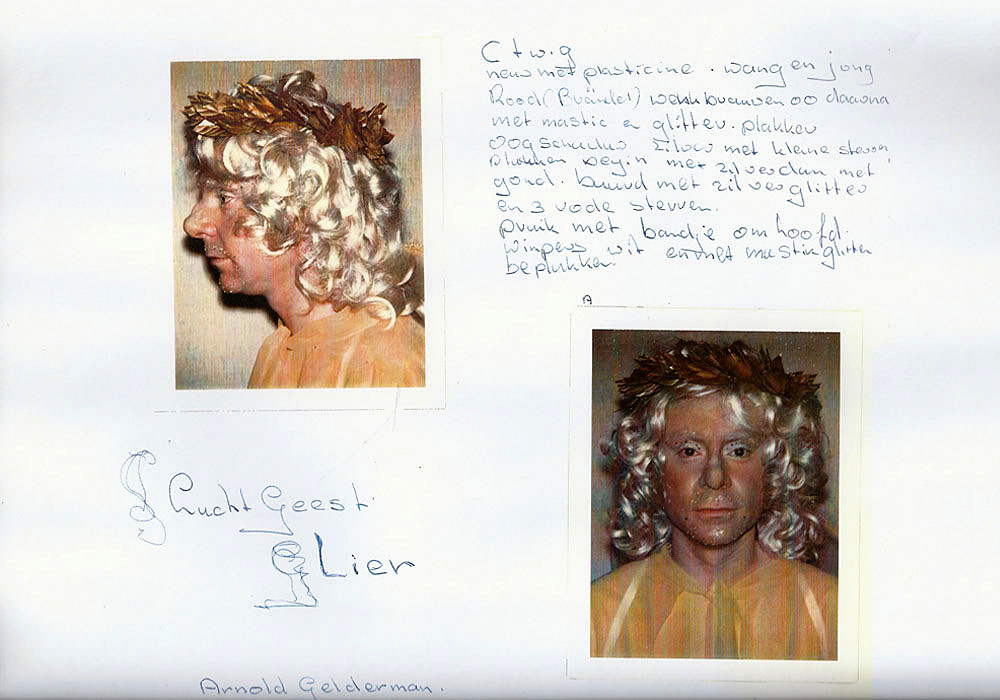 C t w.g
neus met plasticine. wang en jong
Rood wenkbrauwen daarna
met mastic en glitter. plakken
oogschaduw zilver met kleine sterren
plakken begin met zilver dan met
goud. baard met zilver glitter
en 3 rode sterren.
pruik met bandje om hoofd.
wimpers wit en met mastik glitter
beplakken.
A
Lucht Geest
Lier
Arnold Gelderman.